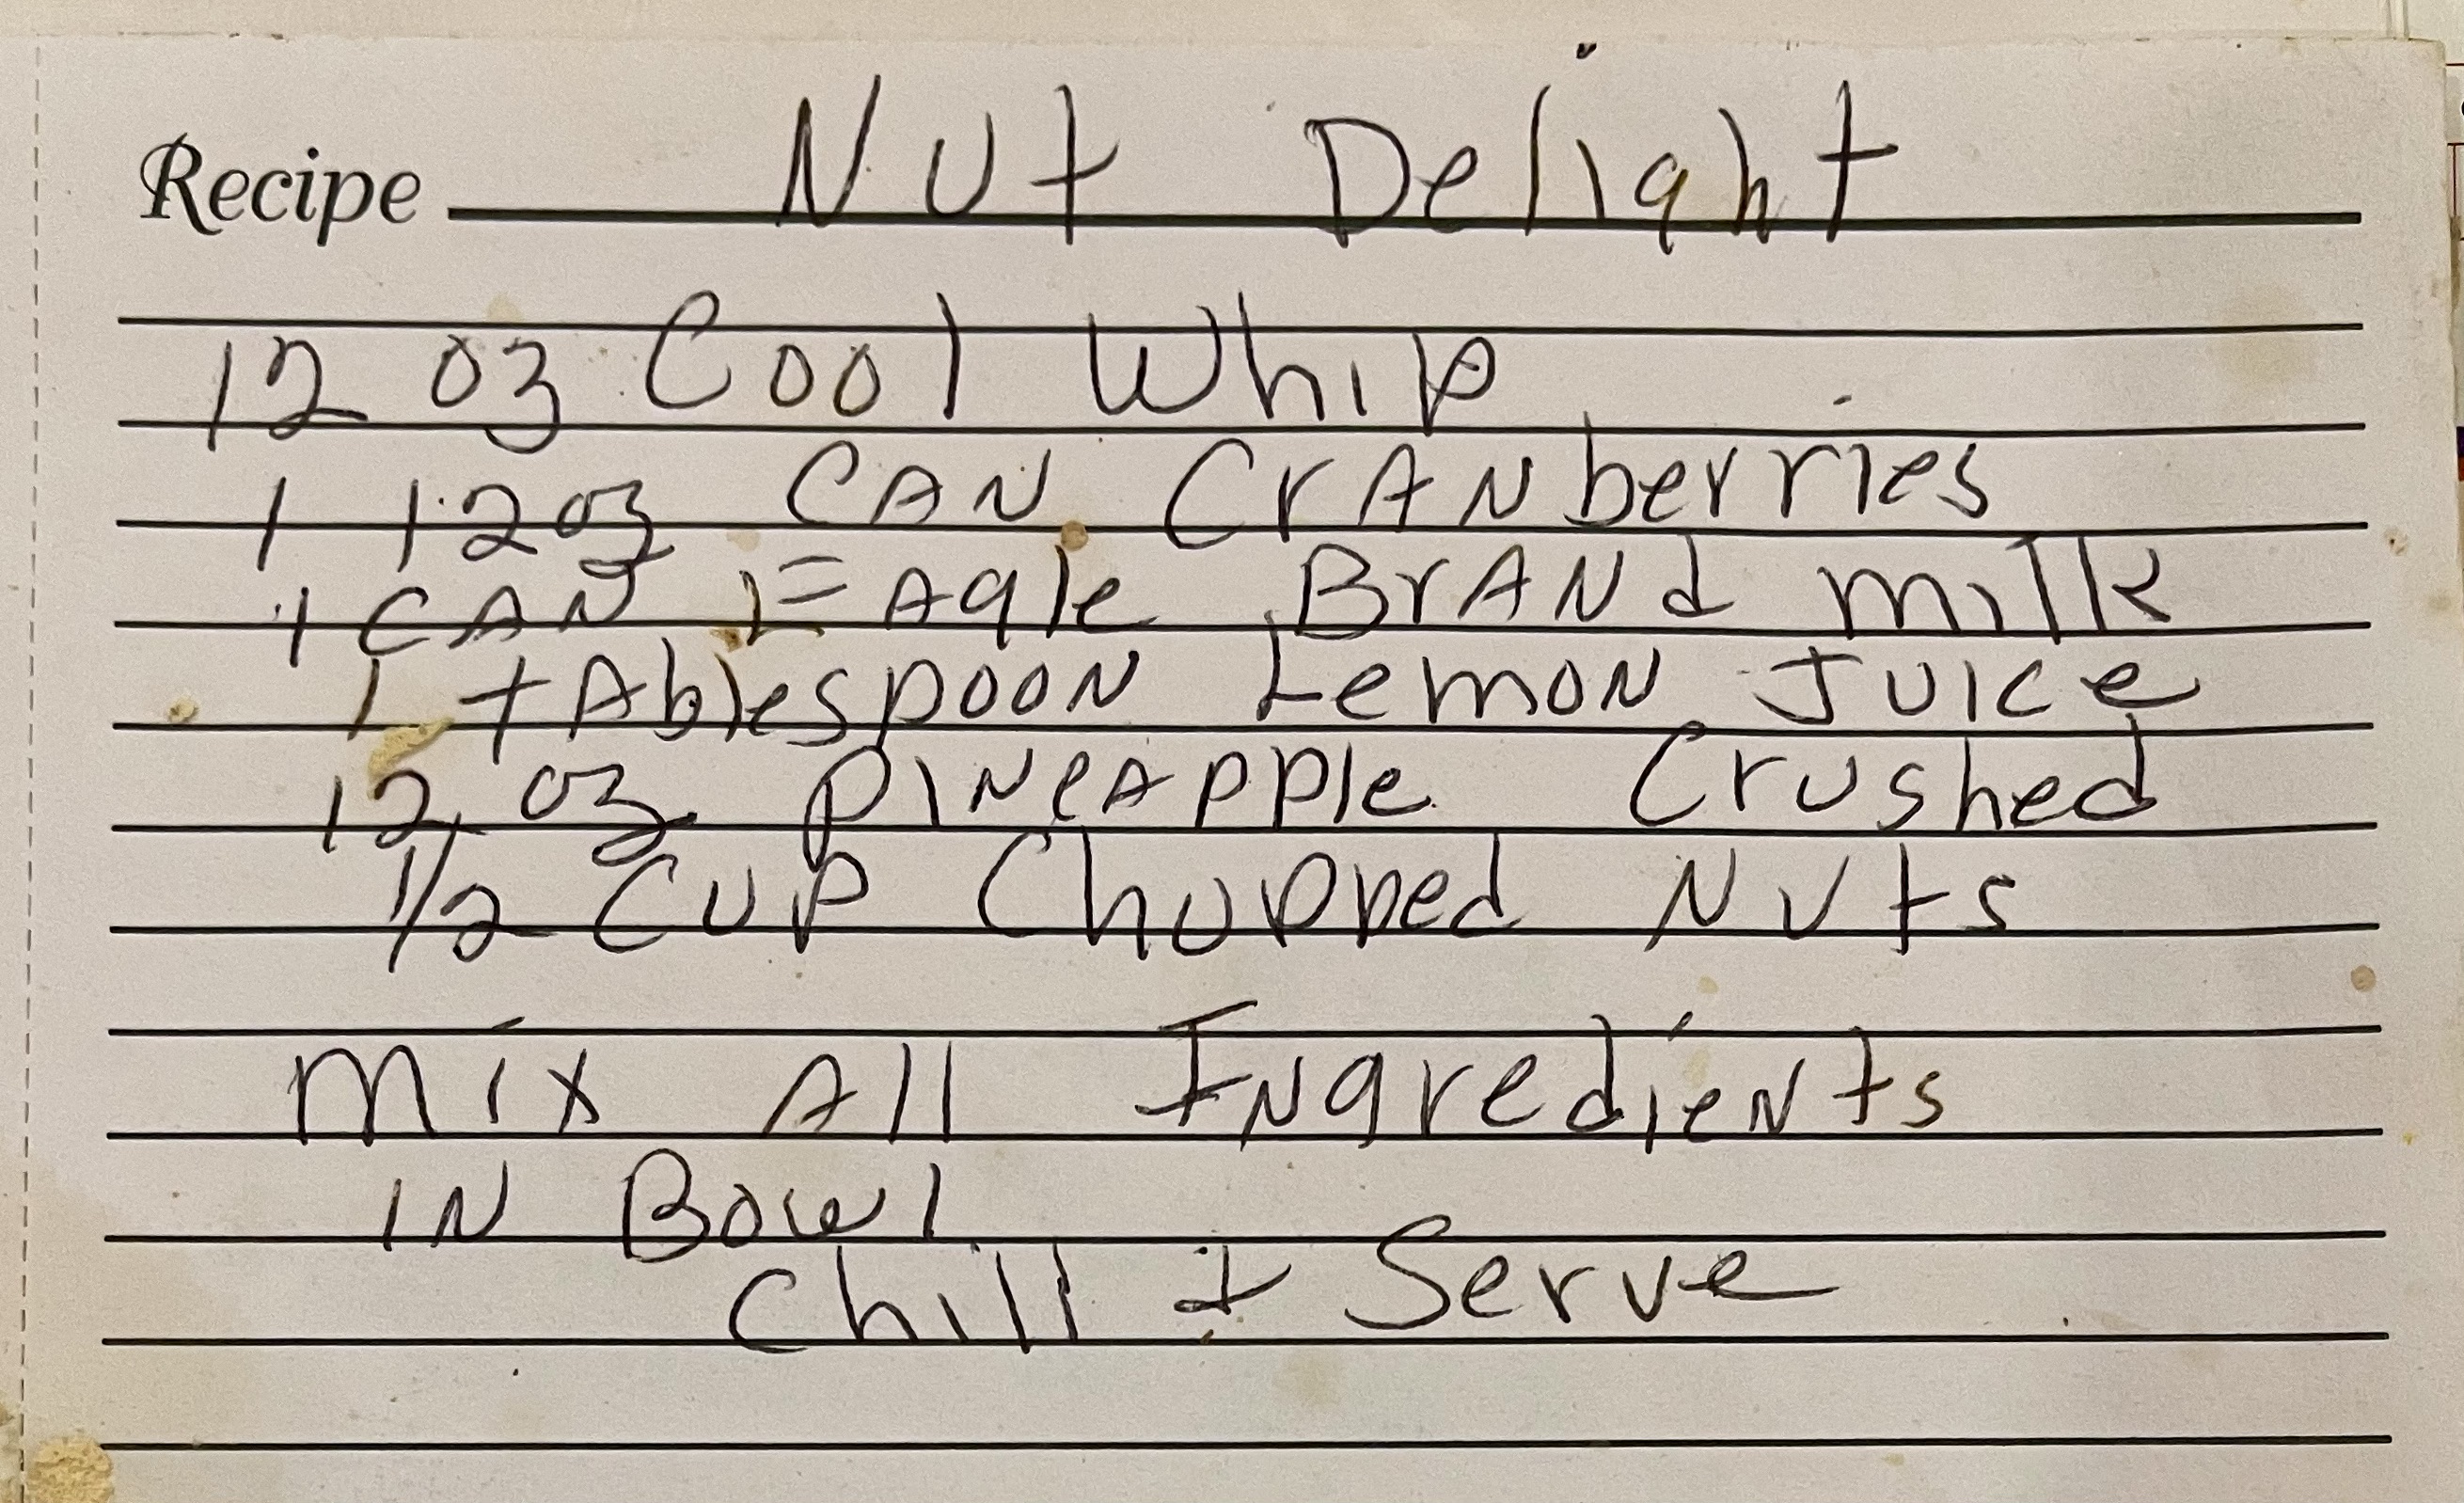 Recipe Nut Delight
12 oz Cool Whip
1 12oz CAN CrANberries
1 CAN EAgle BrANd milk
1 tAblespooN LemoN Juice
12 oz PiNeApple Crushed
1/2 Cup Chopped Nuts
Mix All INgredieNts
IN Bowl
Chill & Serve